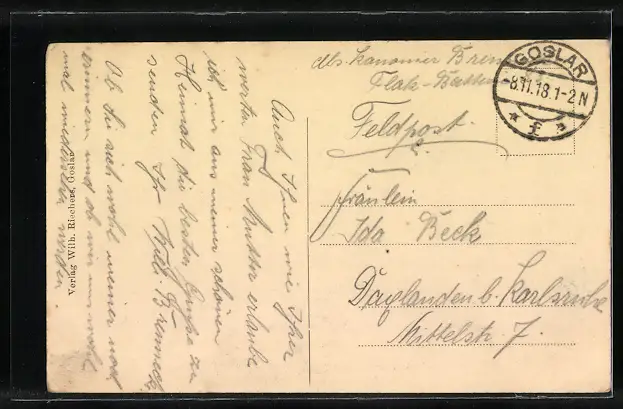 Abs. Kanonier Brenn
Flak-Batterie
Feldpost.
Fräulein
Ida Beck
Daxlanden b. Karlsruhe
Mittelstr. 7.
GOSLAR
-8.11.18.1-2N
* f *
Auch Ihnen wie Ihrer
werten Frau Mutter erlaube
ich mir aus meiner schönen
Heimat die besten Grüße zu
senden Ihr Willi Brennecke
Ob Sie sich wohl meiner noch
erinnern und ob wir uns wohl
mal wiedersehen werden.
Verlag Wilh. Riechers, Goslar